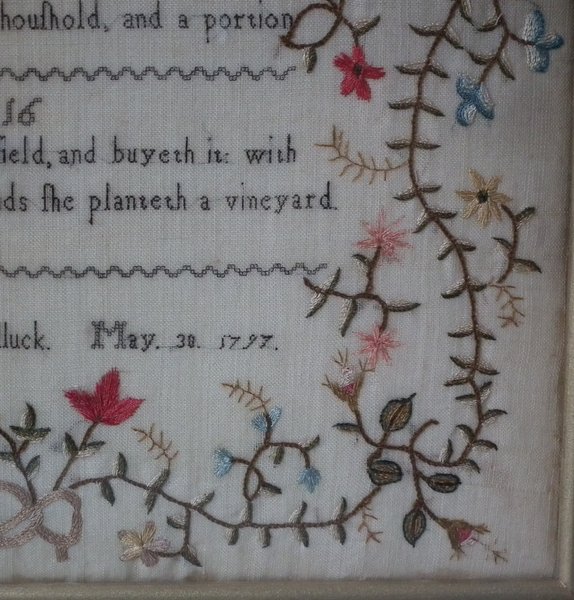 houſhold, and a portion
16
field, and buyeth it: with
ſhe planteth a vineyard.
May. 30. 1797.